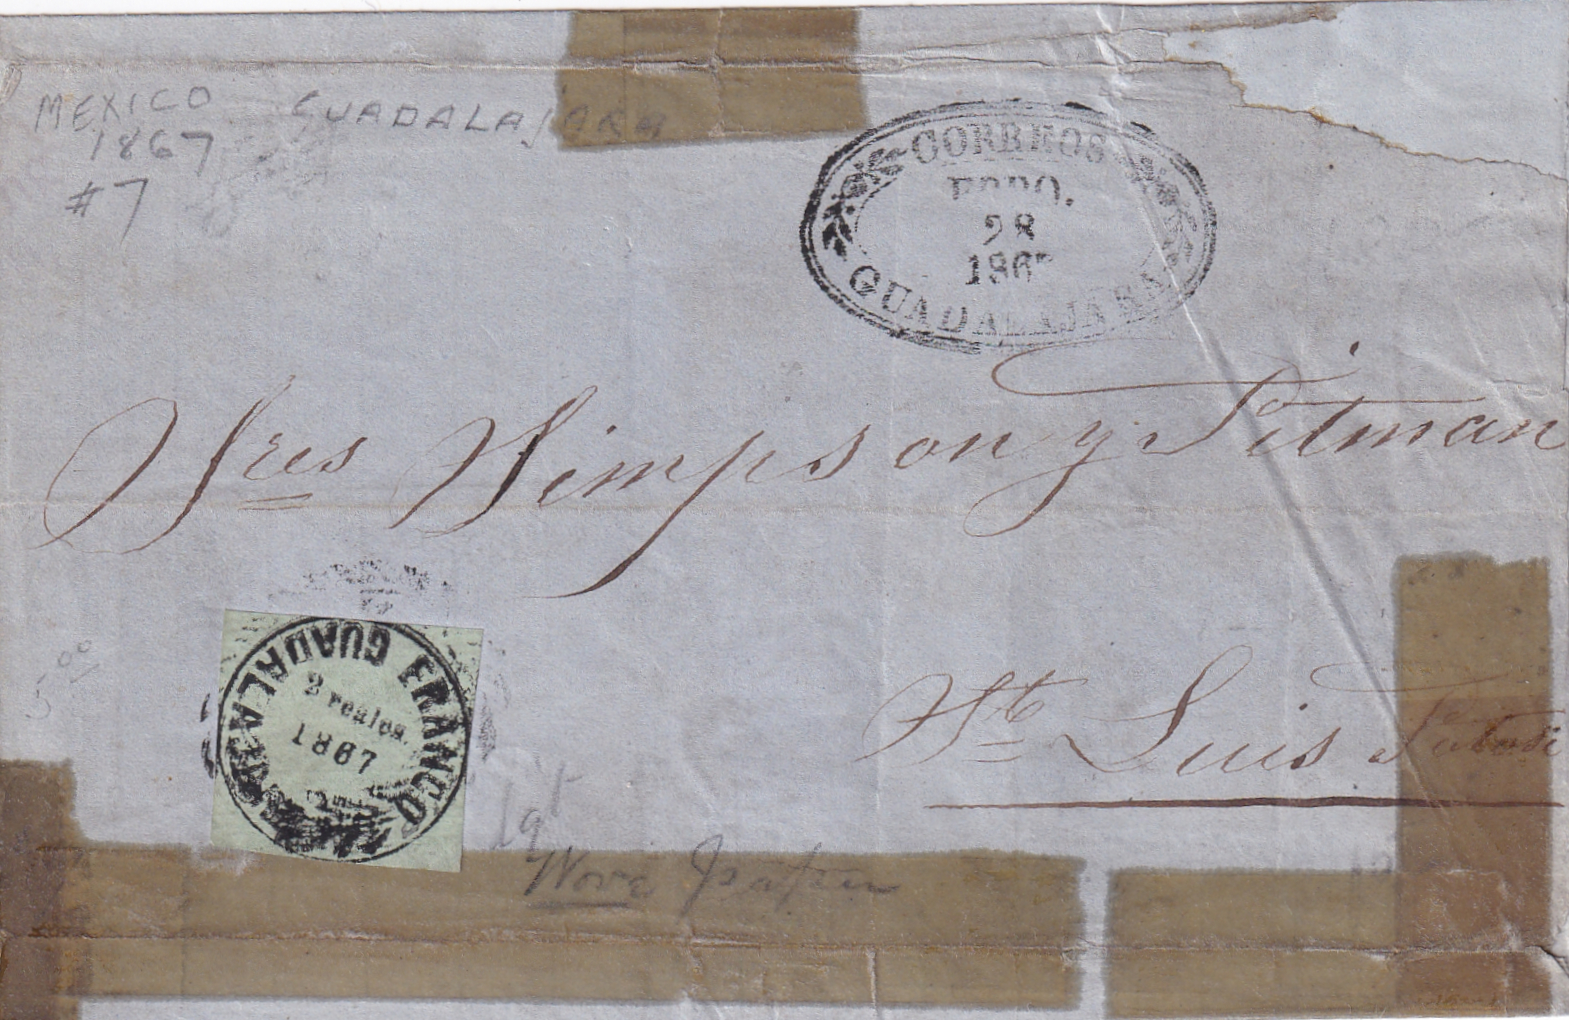 MEXICO GUADALAJARA
1867
#7
CORREOS
EBRO.
28
1867
GUADALAJARA
Sres Simpson y Pitman
5.00
FRANCO GUADALAJARA
2 reales.
1867
Sn Luis Potosi
Wove